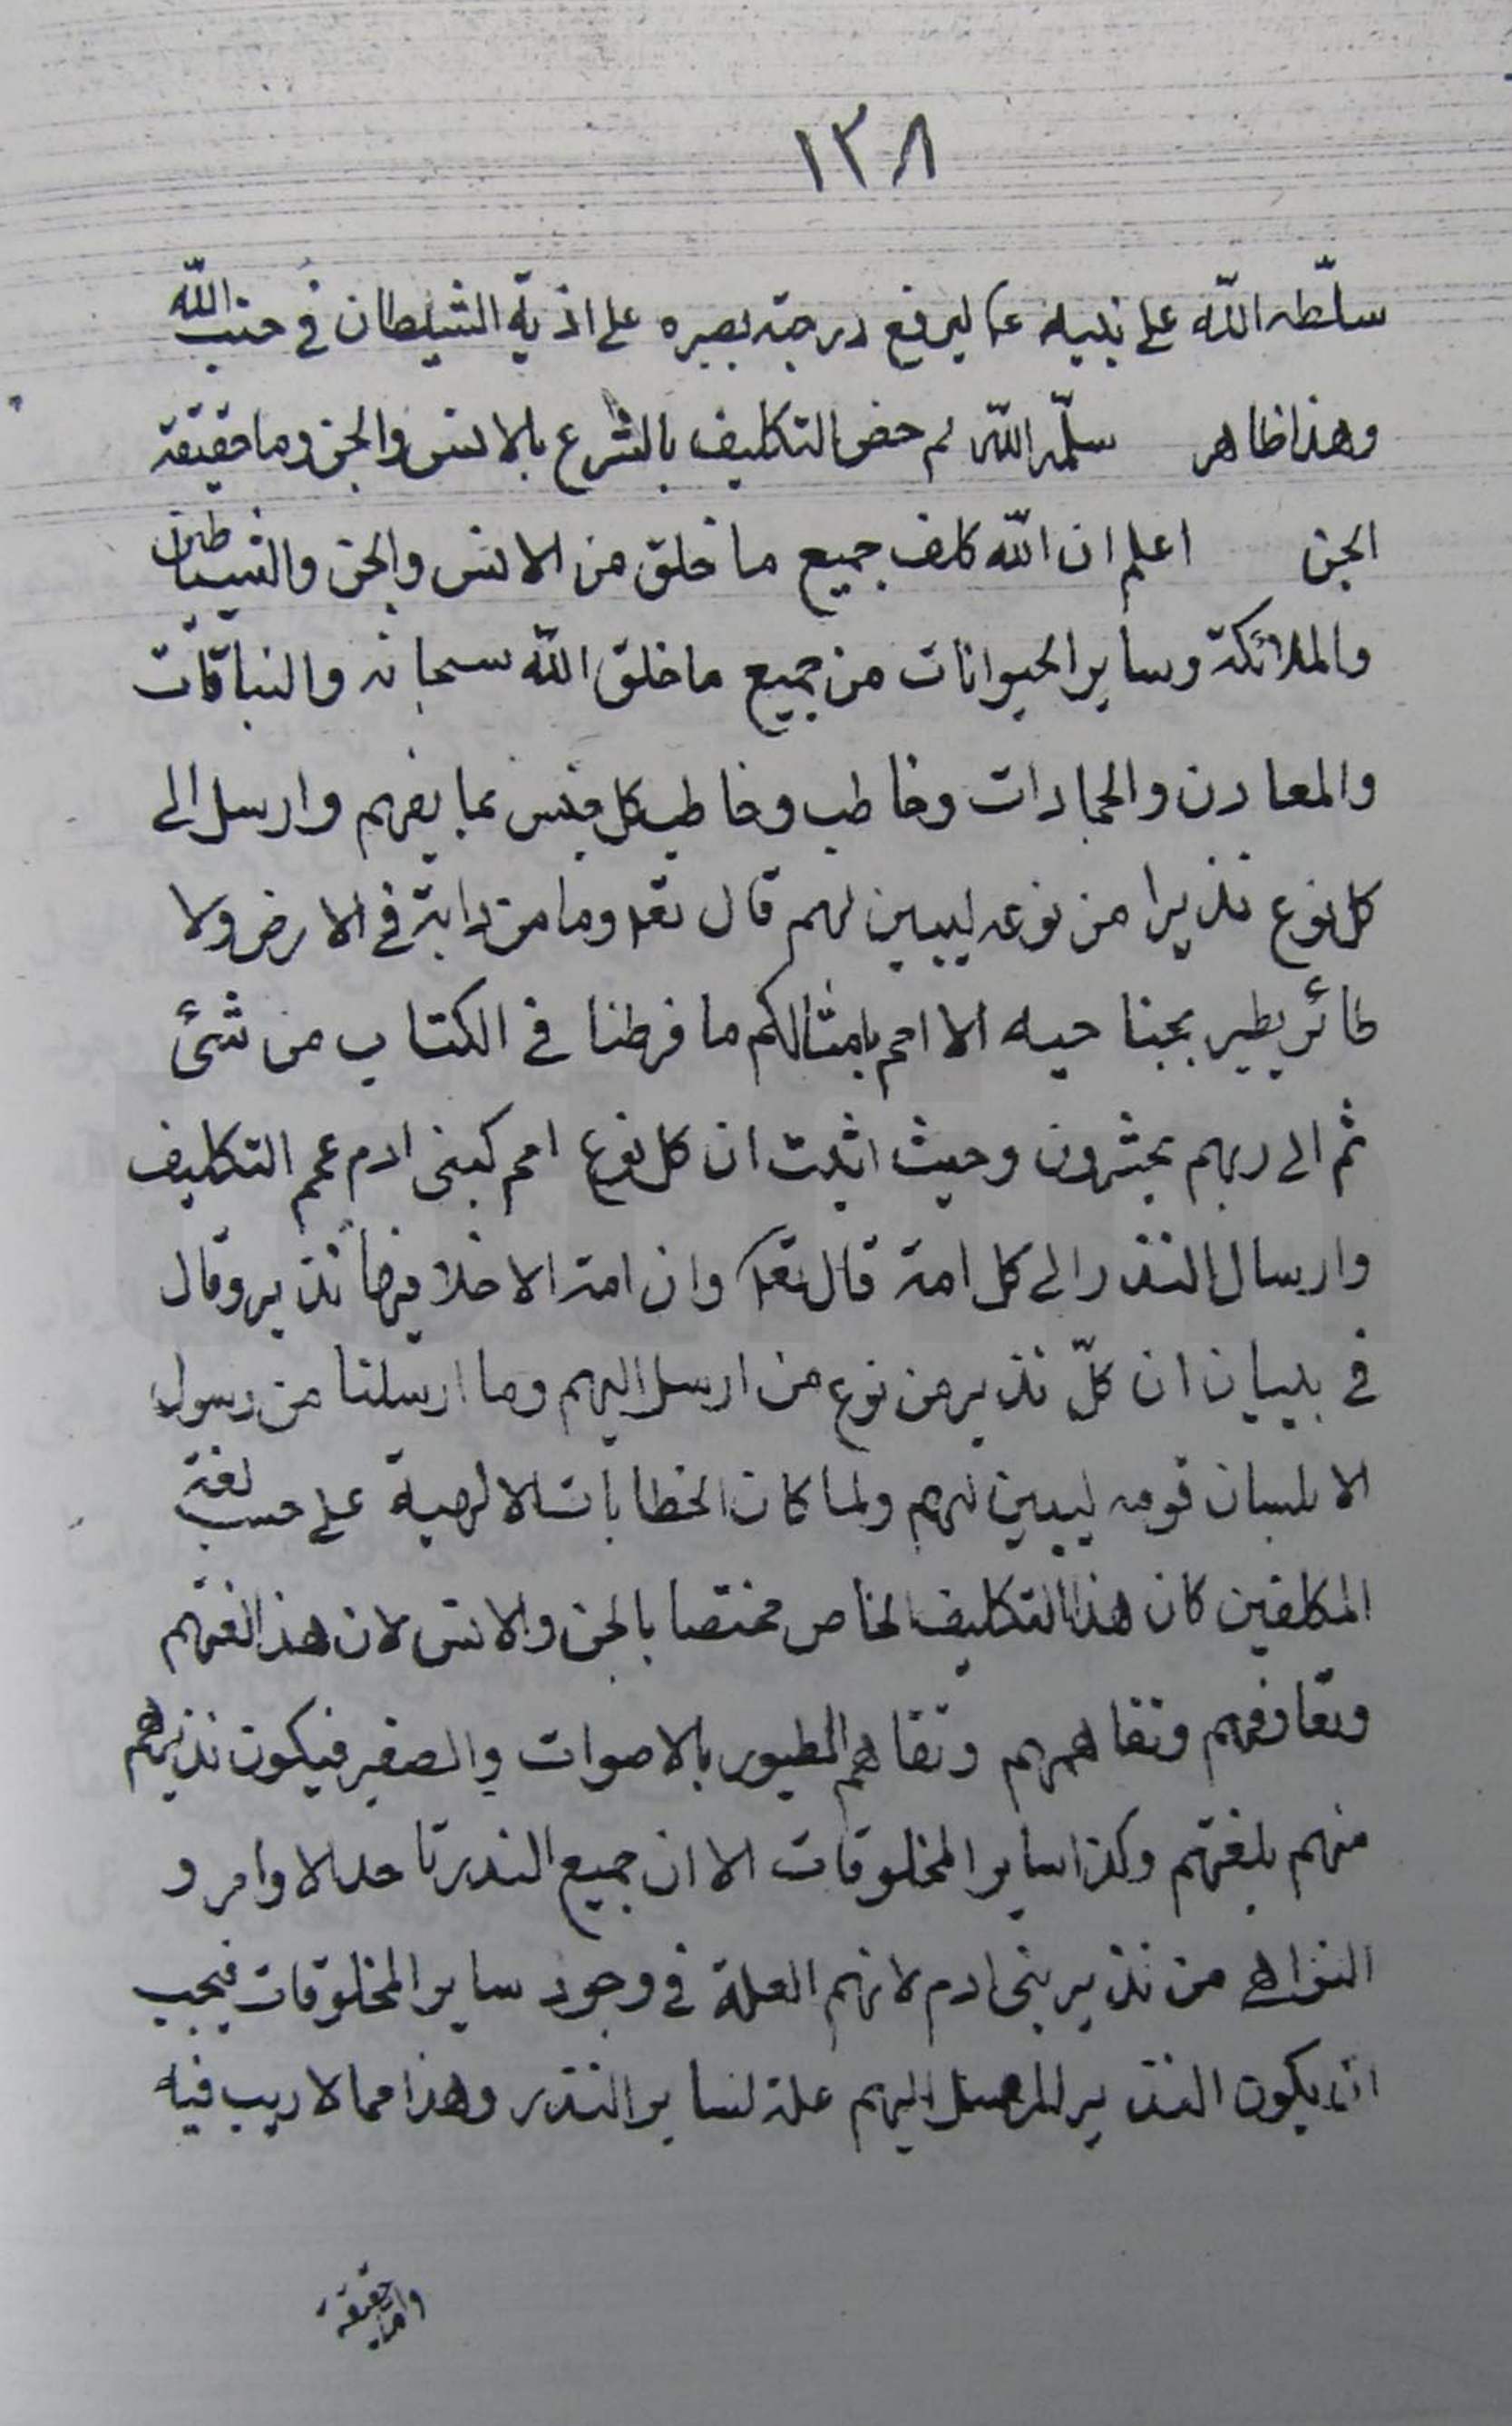 ١٣٨
سلّطه الله على نبيه ع ليرفع درجته بصبره على اذية الشيطان في جنب الله
وهذا ظاهر سلّمه الله لم خص التكليف بالشرع بالانس والجن وما حقيقة
الجن اعلم ان الله كلف جميع ما خلق من الانس والجن والشياطين
والملائكة وساير الحيوانات من جميع ما خلق الله سبحانه والنباتات
والمعادن والجمادات وخاطب وخاطب كل جنس بما يفهم وارسل الى
كل نوع نذيرا من نوعه ليبين لهم قال تعا وما من دابة في الارض ولا
طائر يطير بجناحيه الا امم بامثالكم ما فرطنا في الكتاب من شئ
ثم الى ربهم يحشرون وحيث اثبت ان كل نوع امم كبنى ادم عمم التكليف
وارسال النذر الى كل امة قال تعا وان امة الا خلا فيها نذير وقال
في بيان ان كلّ نذير من نوع من ارسل اليهم وما ارسلنا من رسول
الا بلسان قومه ليبين لهم ولما كان الخطابات الالهية على حسب لغة
المكلفين كان هذا التكليف الخاص مختصا بالجن والانس لان هذا لغتهم
وتعارفهم وتفاهمهم وتفاهم الطيور بالاصوات والصفير فيكون نذيرهم
منهم بلغتهم وكذا ساير المخلوقات الا ان جميع النذر تاخذ الاوامر و
النواهى من نذير بنى ادم لانهم العلة في وجود ساير المخلوقات فيجب
ان يكون النذير المرسل اليهم علة لساير النذر وهذا مما لا ريب فيه
واما حقيقة